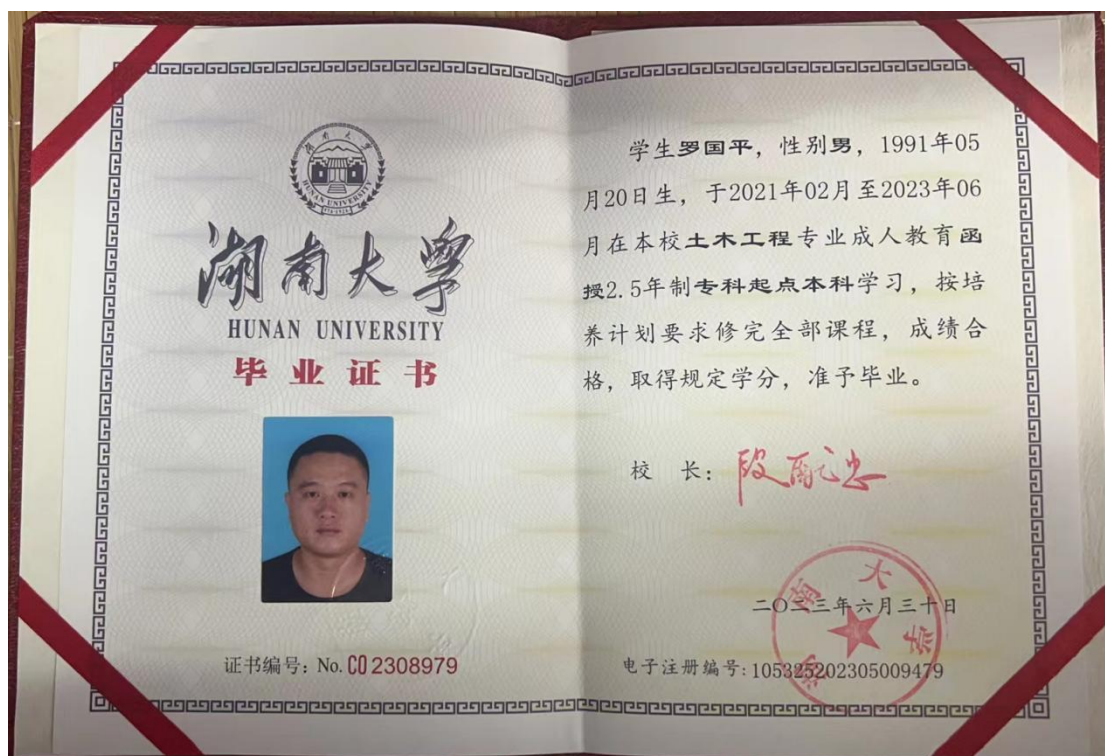 湖南大学
HUNAN UNIVERSITY
湖南大学
HUNAN UNIVERSITY
毕业证书
证书编号: No. CO2308979
学生罗国平, 性别男, 1991年05
月20日生, 于2021年02月至2023年06
月在本校土木工程专业成人教育函
授2.5年制专科起点本科学习, 按培
养计划要求修完全部课程, 成绩合
格, 取得规定学分, 准予毕业。
校 长: 段献忠
二〇二三年六月三十日
湖南大学
电子注册编号: 105325202305009479